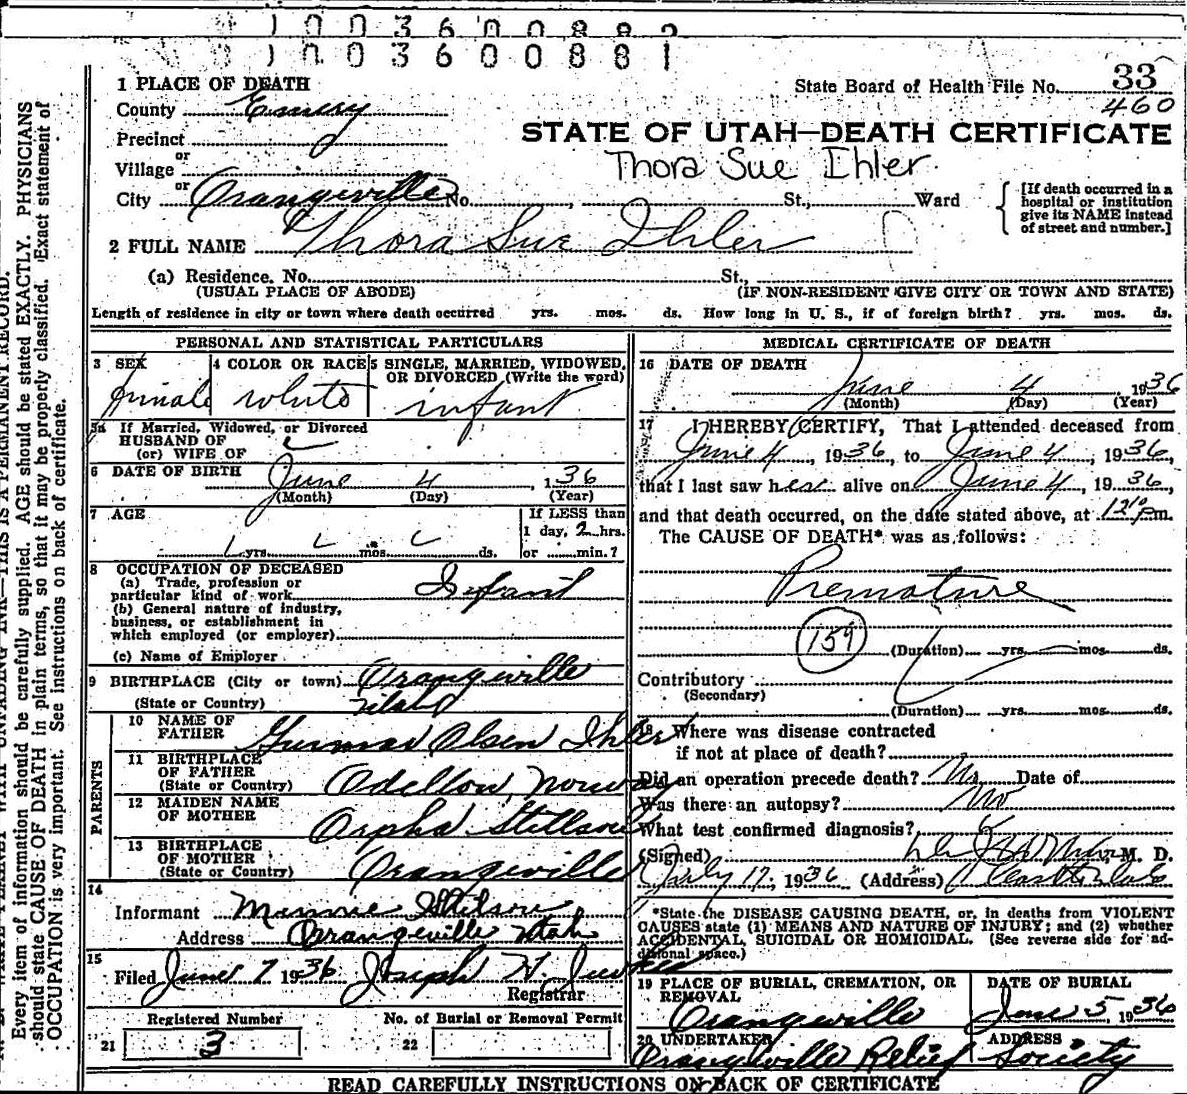 1003600882
1003600881
1 PLACE OF DEATH
State Board of Health File No. 33
460
County Emery
STATE OF UTAH—DEATH CERTIFICATE
Precinct
or
Thora Sue Ihler
Village
or
City Orangeville No. , St., Ward
[If death occurred in a
hospital or institution
give its NAME instead
of street and number.]
2 FULL NAME Thora Sue Ihler
(a) Residence. No. St.,
(USUAL PLACE OF ABODE) (IF NON-RESIDENT GIVE CITY OR TOWN AND STATE)
Length of residence in city or town where death occurred yrs. mos. ds. How long in U. S., if of foreign birth? yrs. mos. ds.
PERSONAL AND STATISTICAL PARTICULARS
3 SEX 4 COLOR OR RACE 5 SINGLE, MARRIED, WIDOWED,
OR DIVORCED (Write the word)
female white infant
5a If Married, Widowed, or Divorced
HUSBAND OF
(or) WIFE OF
6 DATE OF BIRTH June 4, 1 36
(Month) (Day) (Year)
7 AGE If LESS than
1 day, 2 hrs.
yrs. mos. ds. or min.?
8 OCCUPATION OF DECEASED
(a) Trade, profession or
particular kind of work Infant
(b) General nature of industry,
business, or establishment in
which employed (or employer)
(c) Name of Employer
9 BIRTHPLACE (City or town) Orangeville
(State or Country) Utah
PARENTS
10 NAME OF
FATHER Olsen Ihler
11 BIRTHPLACE
OF FATHER
(State or Country) Norway
12 MAIDEN NAME
OF MOTHER Orpha
13 BIRTHPLACE
OF MOTHER
(State or Country) Orangeville
14
Informant Minnie
Address Orangeville Utah
15
Filed June 7 1936 Joseph H.
Registrar
Registered Number No. of Burial or Removal Permit
21 3 22
MEDICAL CERTIFICATE OF DEATH
16 DATE OF DEATH
June 4 1936
(Month) (Day) (Year)
17 I HEREBY CERTIFY, That I attended deceased from
June 4, 1936, to June 4, 1936,
that I last saw her alive on June 4, 1936,
and that death occurred, on the date stated above, at pm.
The CAUSE OF DEATH* was as follows:
Premature
159
(Duration) yrs. mos. ds.
Contributory
(Secondary)
(Duration) yrs. mos. ds.
18 Where was disease contracted
if not at place of death?
Did an operation precede death? No Date of
Was there an autopsy? No
What test confirmed diagnosis?
(Signed) M. D.
July 17, 1936 (Address)
*State the DISEASE CAUSING DEATH, or, in deaths from VIOLENT
CAUSES state (1) MEANS AND NATURE OF INJURY; and (2) whether
ACCIDENTAL, SUICIDAL OR HOMICIDAL. (See reverse side for ad-
ditional space.)
19 PLACE OF BURIAL, CREMATION, OR
REMOVAL
Orangeville
DATE OF BURIAL
June 5, 1936
20 UNDERTAKER ADDRESS
Orangeville Relief Society
READ CAREFULLY INSTRUCTIONS ON BACK OF CERTIFICATE
Every item of information should be carefully supplied. AGE should be stated EXACTLY. PHYSICIANS
should state CAUSE OF DEATH in plain terms, so that it may be properly classified. Exact statement of
OCCUPATION is very important. See instructions on back of certificate.